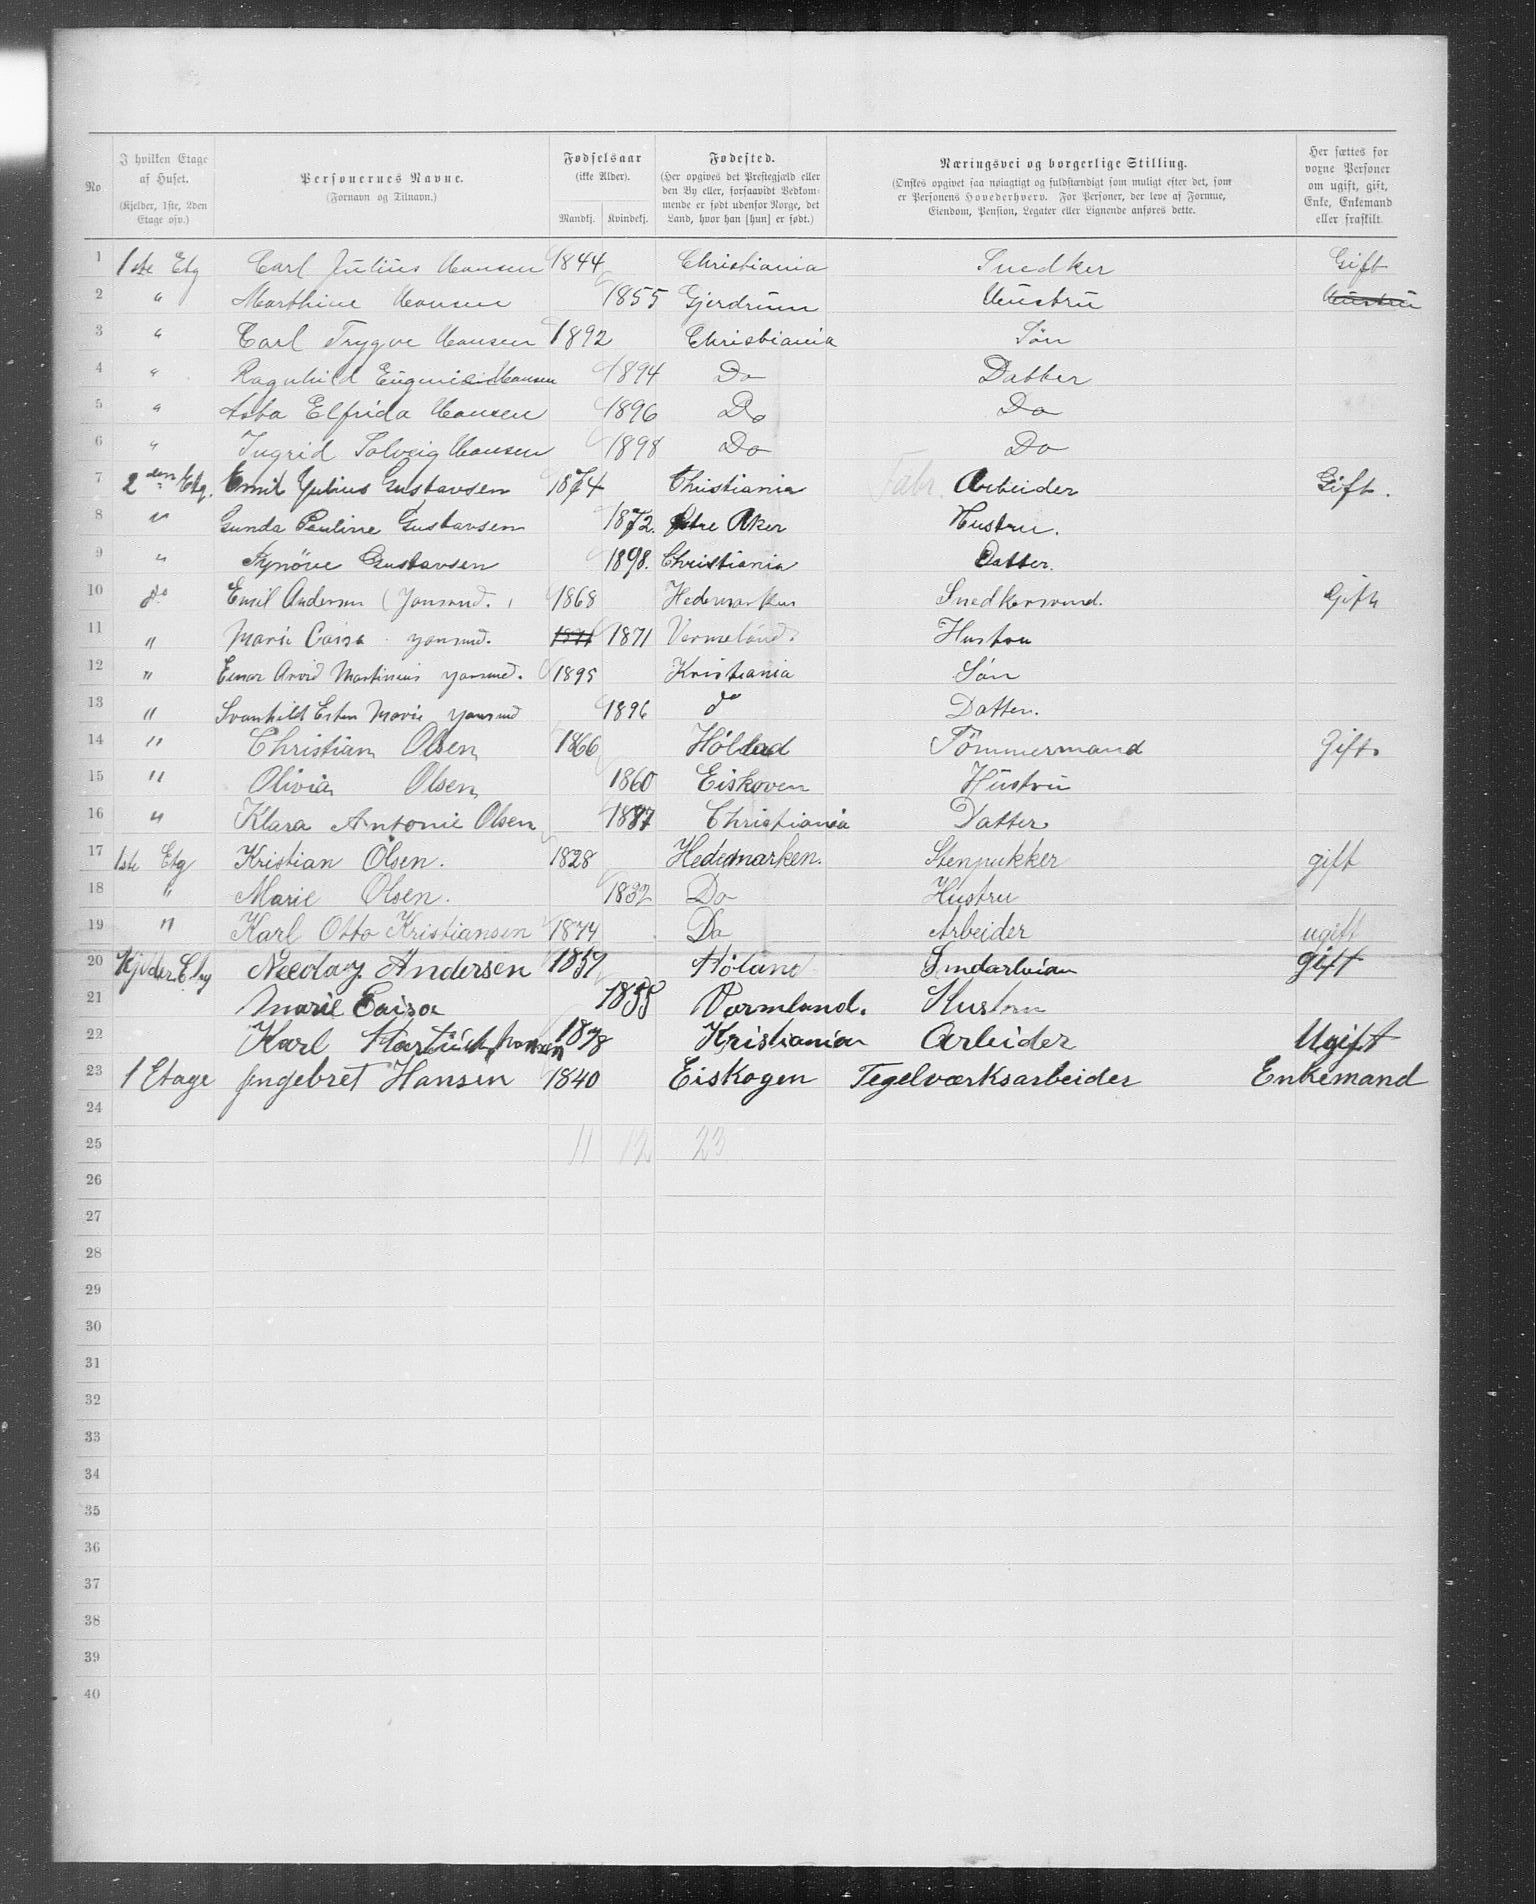 No
I hvilken Etage af Huset.
(Kjelder, 1ste, 2den Etage osv.)
Personernes Navne.
(Fornavn og Tilnavn.)
Fødselsaar
(ikke Alder).
Mandkj. Kvindekj.
Fødested.
(Her opgives det Prestegjæld eller
den By eller, forsaavidt Vedkom-
mende er født udenfor Norge, det
Land, hvor han [hun] er født.)
Næringsvei og borgerlige Stilling.
(Ønskes opgivet saa nøiagtigt og fuldstændigt som muligt efter det, som
er Personens Hovederhverv. For Personer, der leve af Formue,
Eiendom, Pension, Legater eller Lignende anføres dette.
Her sættes for
voxne Personer
om ugift, gift,
Enke, Enkemand
eller fraskilt.
1 1ste Etg Carl Julius Hansen 1844 Christiania Snedker Gift
2 " Marthine Hansen 1855 Gjerdrum Hustru Hustru
3 " Carl Trygve Hansen 1892 Christiania Søn
4 " Ragnhild Eugenie Hansen 1894 Do Datter
5 " Asta Elfrida Hansen 1896 Do Do
6 " Ingrid Solveig Hansen 1898 Do Do
7 2den Etg. Emil Julius Gustavsen 1874 Christiania Fabr. Arbeider Gift.
8 " Gunda Pauline Gustavsen 1872. Østre Aker Hustru.
9 " Synöve Gustavsen 1898. Christiania Datter.
10 do Emil Andersen (Jonsrud.) 1868 Hedemarken Snedkersvend. Gift
11 " Marie Caisa Jonsrud. 1871 1871 Vermeland. Hustru
12 " Einar Arvid Martinius Jonsrud. 1895 Kristiania Søn
13 " Svanhild Ester Marie Jonsrud 1896 do Datter.
14 " Christian Olsen 1866 Höland Tömmermand Gift.
15 " Olivia Olsen 1860 Eiskoven Hustru
16 " Klara Antonie Olsen 1887 Christiania Datter
17 1ste Etg Kristian Olsen. 1828 Hedemarken. Stenpukker gift
18 " Marie Olsen. 1832 Do Hustru
19 " Karl Otto Kristiansen 1874 Do Arbeider ugift
20 Kjelder Etg Nicolay Andersen 1857 Höland gift
21 Marie Caisa 1855 Vormland. Hustru
22 Karl 1878 Kristiania Arbeider Ugift
23 1 Etage Ingebret Hansen 1840 Eiskogen Tegelværksarbeider Enkemand
24
25 11 12 23
26
27
28
29
30
31
32
33
34
35
36
37
38
39
40